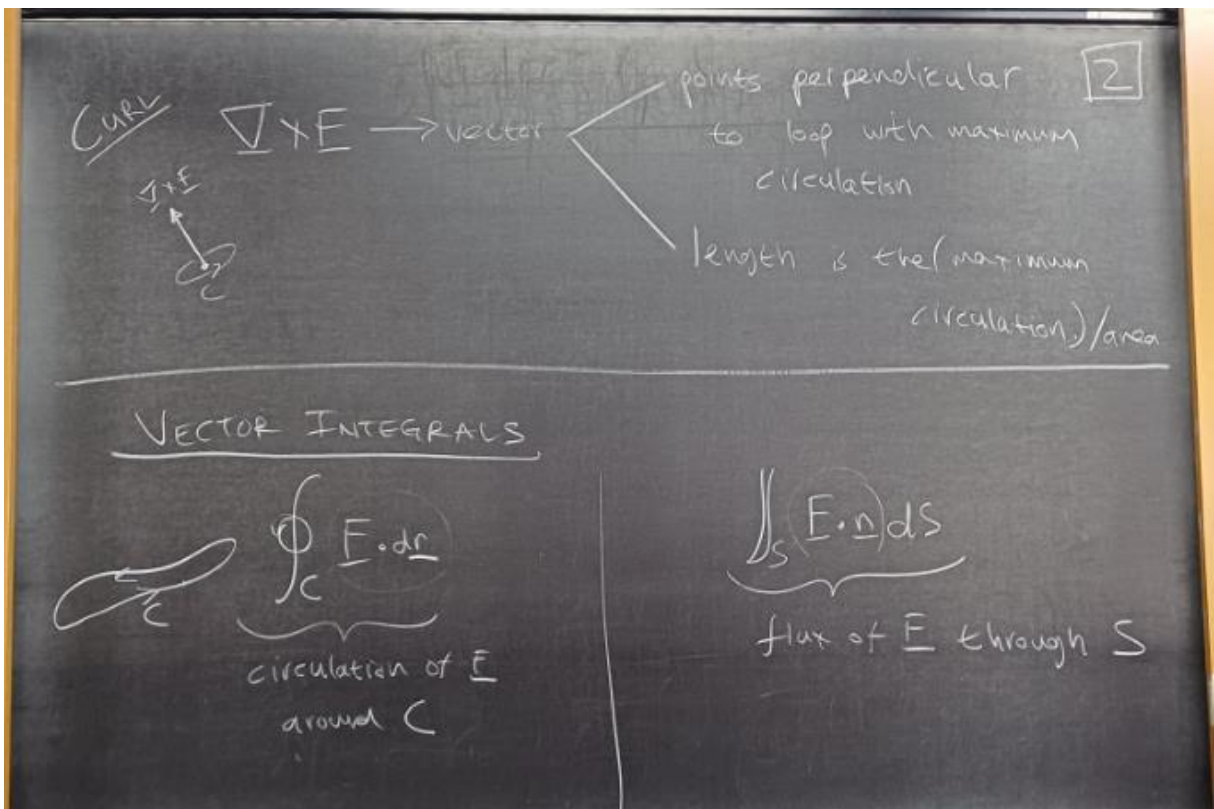 CURL
∇×E → vector
points perpendicular
to loop with maximum
circulation
2
∇×E
C
length is the (maximum
circulation)/area
VECTOR INTEGRALS
∮_C E·dr
C
circulation of E
around C
∬_S (E·n)dS
flux of E through S